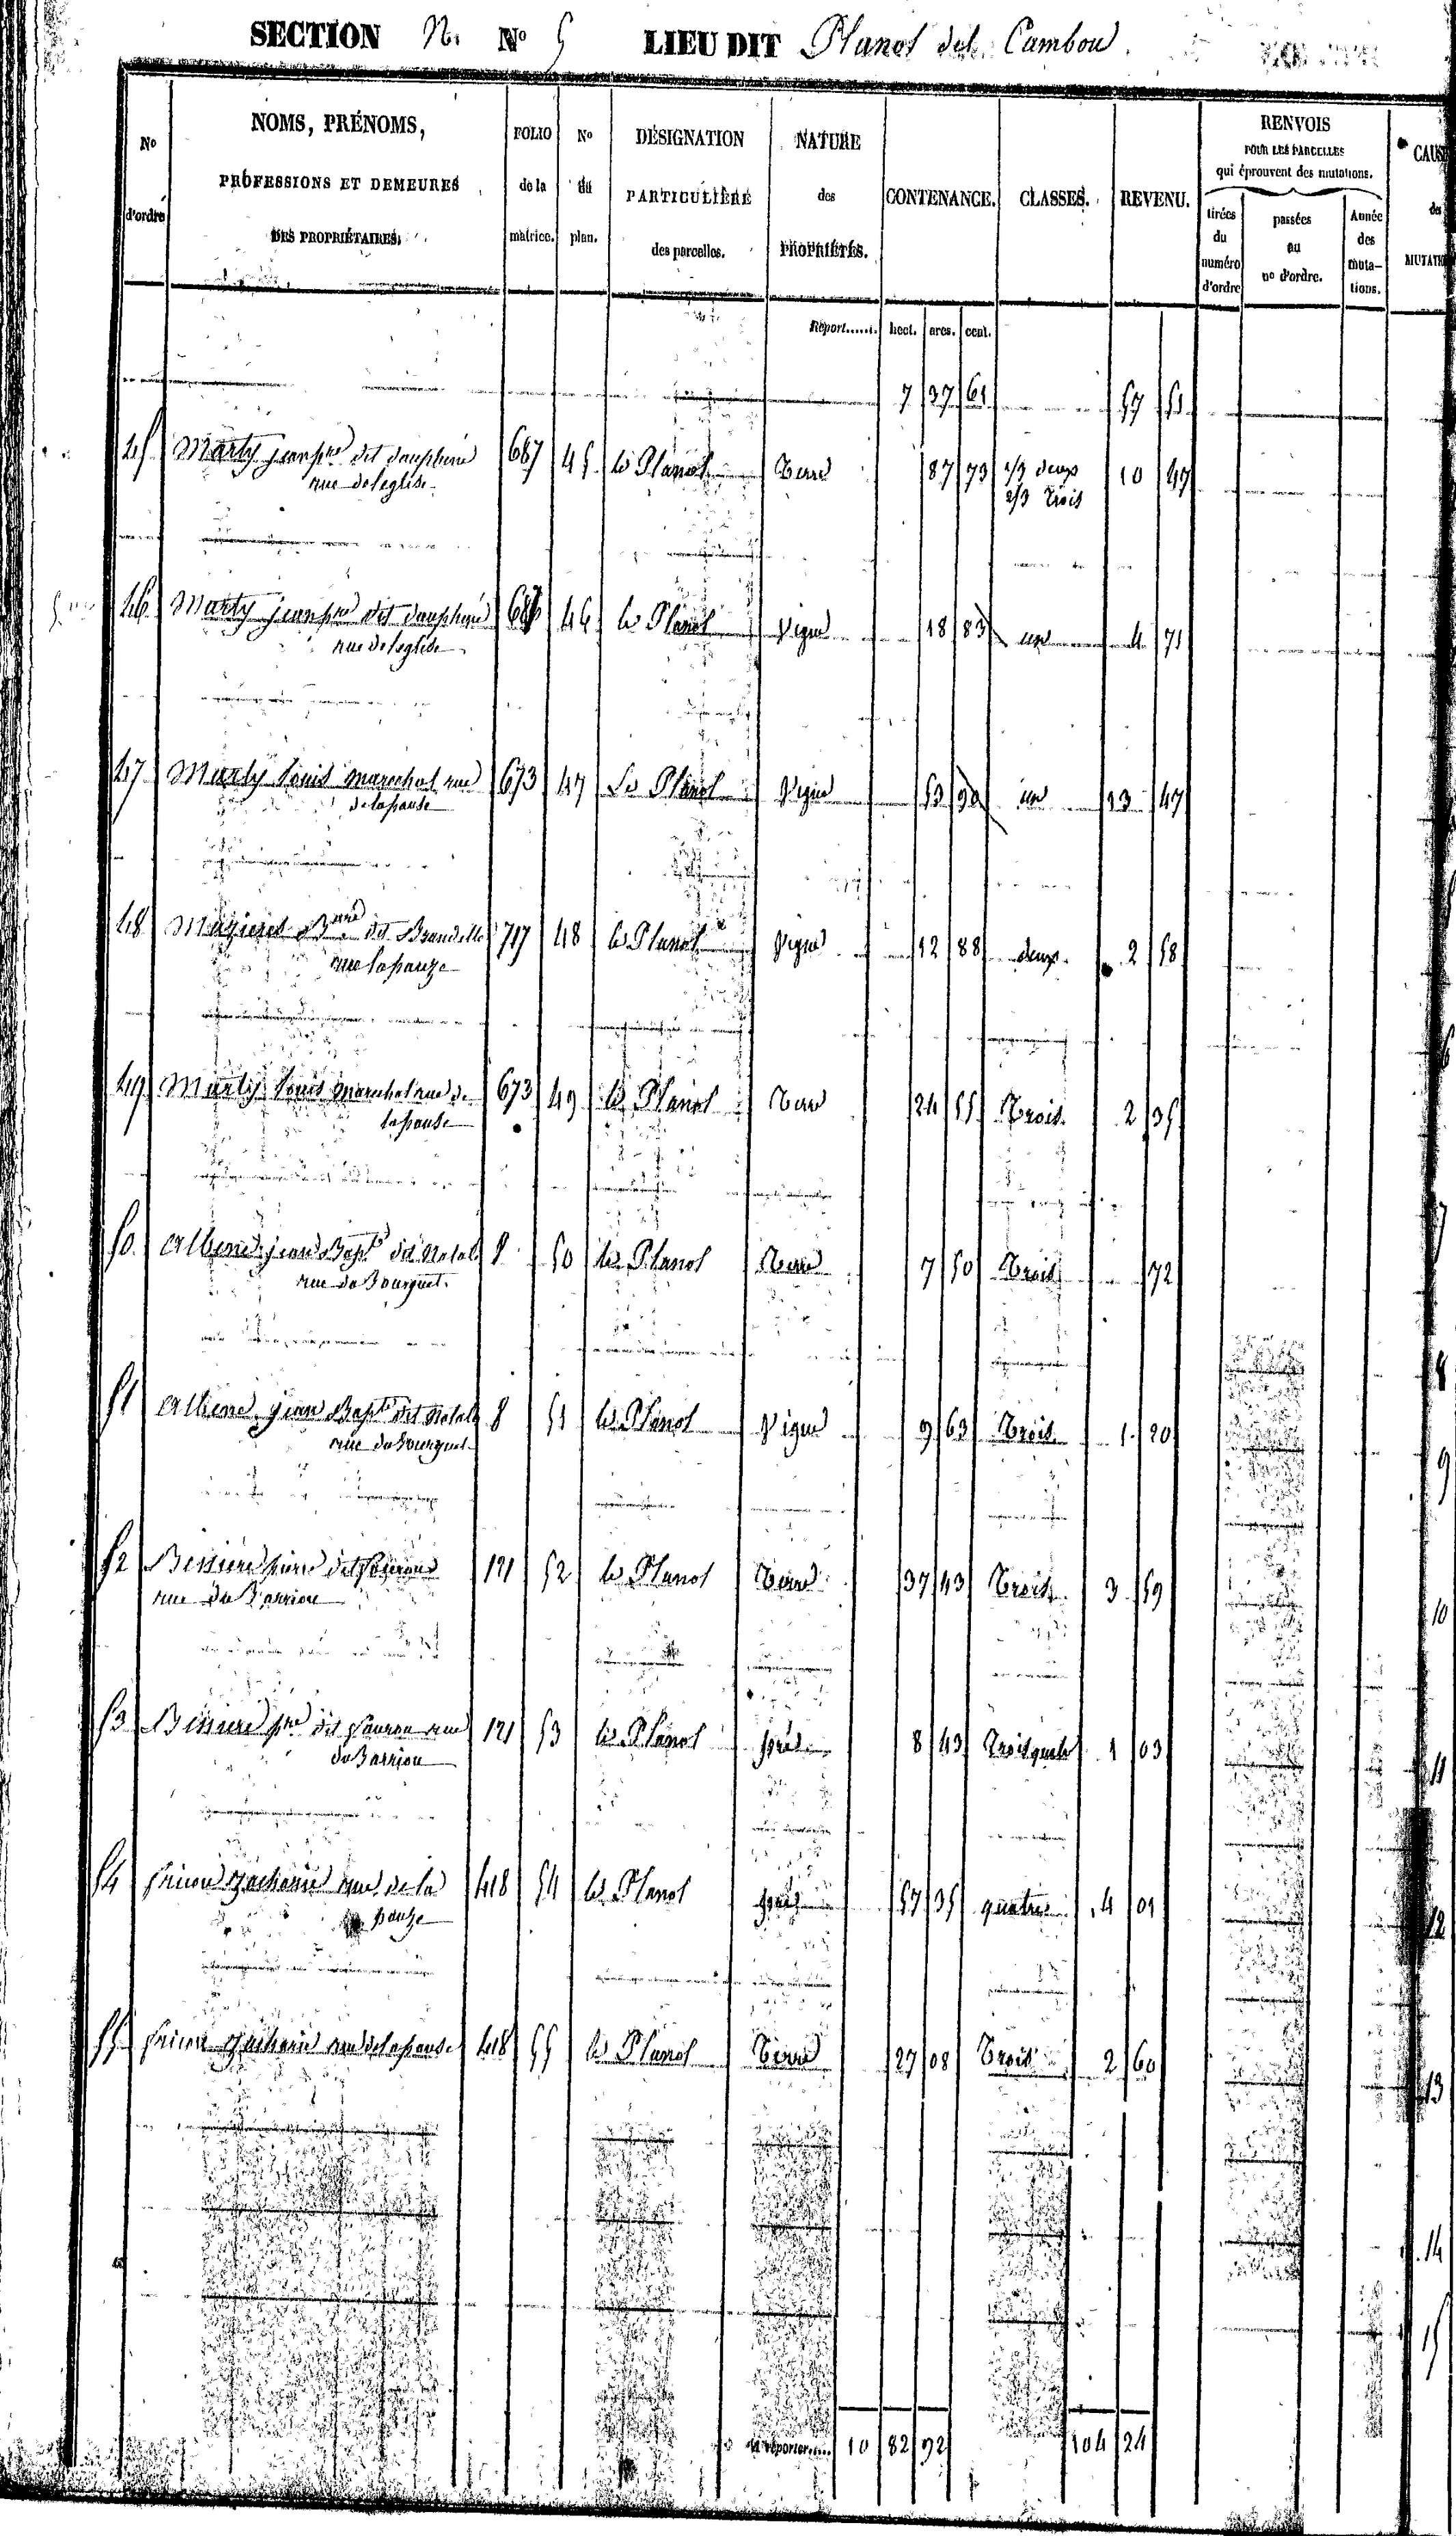 SECTION N. No 5 LIEU DIT Planol del Cambou
No d'ordre
NOMS, PRÉNOMS,
PROFESSIONS ET DEMEURES
DES PROPRIÉTAIRES.
FOLIO de la matrice.
No du plan.
DÉSIGNATION PARTICULIÈRE des parcelles.
NATURE des PROPRIÉTÉS.
CONTENANCE.
CLASSES.
REVENU.
RENVOIS
POUR LES PARCELLES
qui éprouvent des mutations.
tirées du numéro d'ordre
passées au no d'ordre.
Année des muta-tions.
CAUSE
des
MUTATI
Report...... hect. ares. cent.
7 37 61 57 51
45 Marty jean pre dit dauphiné 687 45 le Planol Terre 87 73 1/3 deux 10 47
rue de leglise 2/3 Trois
46 Marty jean pre dit dauphiné 687 46 le Planol Vigne 18 83 un 4 71
rue de leglise
47 Marty louis marechal rue 673 47 Le Planol Vigne 53 90 un 13 47
de lapause
48 Mazieres dit 717 48 le Planol Vigne 12 88 deux 2 58
rue lapauze
49 Marty louis marechal rue de 673 49 le Planol Terre 24 55 Trois 2 35
lapause
50 Albene jean Bapte dit Natal 8 50 le Planol Terre 7 50 Trois 72
rue du Bourguet
51 Albene jean Bapte dit Natal 8 51 le Planol Vigne 9 63 Trois 1 20
rue du Bourguet
52 Bessiere pierre dit 121 52 le Planol Terre 37 43 Trois 3 59
rue du Barriou
53 Bessiere pre dit rue 121 53 le Planol pré 8 43 Trois quatre 1 03
du Barriou
54 Zacharie rue de la 418 54 le Planol pré 57 35 quatre 4 01
pauze
55 Zacharie rue de lapause 418 55 le Planol Terre 27 08 Trois 2 60
A reporter..... 10 82 92 104 24
7
8
9
10
11
12
13
14
15